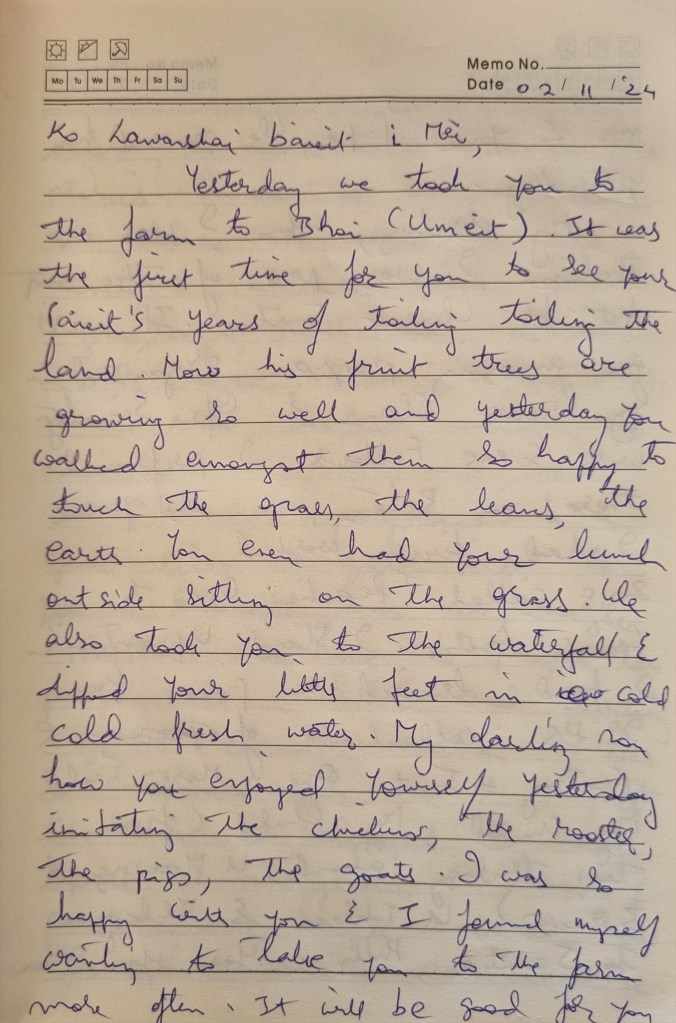 Memo No.
Mo Tu We Th Fr Sa Su
Date 02/11/'24
Ko Lawanshai báieit i Mei,
Yesterday we took you to
the farm to Bhoi (Umeit). It was
the first time for you to see your
Páieit's years of toiling toiling the
land. Now his fruit trees are
growing so well and yesterday you
walked amongst them so happy to
touch the grass, the leaves, the
earth. You even had your lunch
outside sitting on the grass. We
also took you to the waterfall &
dipped your little feet in cold
cold fresh water. My darling son
how you enjoyed yourself yesterday
imitating the chickens, the rooster,
the pigs, the goats. I was so
happy with you & I found myself
wanting to take you to the farm
more often. It will be good for you